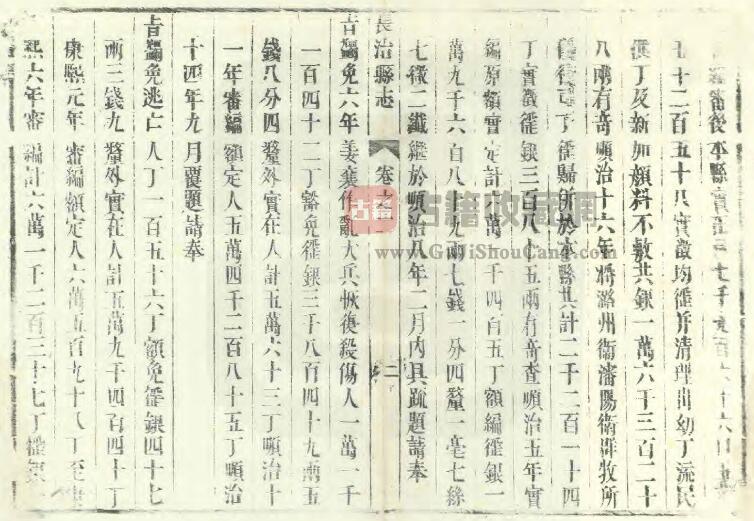 審後本縣實
七十二百五十八實徵均徭并清理出幼丁流民
供丁及新加顏料不敷共銀一萬六千三百二十
八兩有奇順治十六年將潞州衛瀋陽衛群牧所
歸併於本縣共計二千二百一十四
丁實徵徭銀三百八十五兩有奇查順治五年實
編原額會定計萬千四百五丁額編徭銀一
萬九千六百八十九兩七錢一分四釐一毫七絲
七微二纖繼於順治八年二月內具疏題請奉
長治縣志
卷之
二
旨蠲免六年姜襄作亂大兵恢復殺傷人一萬一千
一百四十二丁豁免徭銀三千八百四十九兩五
錢八分四釐外實在人計五萬六十三丁順治十
一年審編額定人五萬四千二百八十五丁順治
十四年九月覆題請奉
旨蠲免逃亡人丁一百五十六丁額免徭銀四十七
兩三錢九釐外實在人計五萬九千四百四十丁
康熙元年審編額定人六萬五百九十八丁至康
熙六年審編計六萬一千二百三十七丁徭銀
古籍
古籍收藏网
www.GuJiShouCang.com